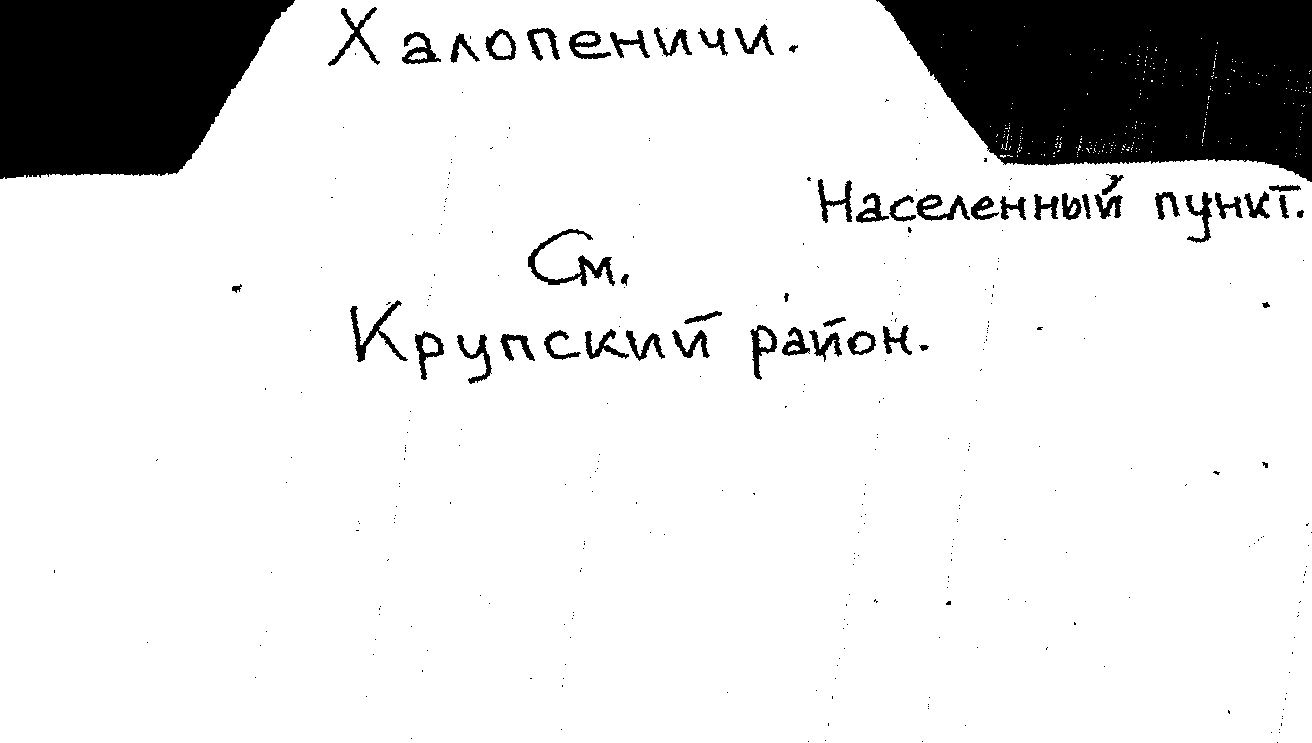 Халопеничи.
Населенный пункт.
См.
Крупский район.